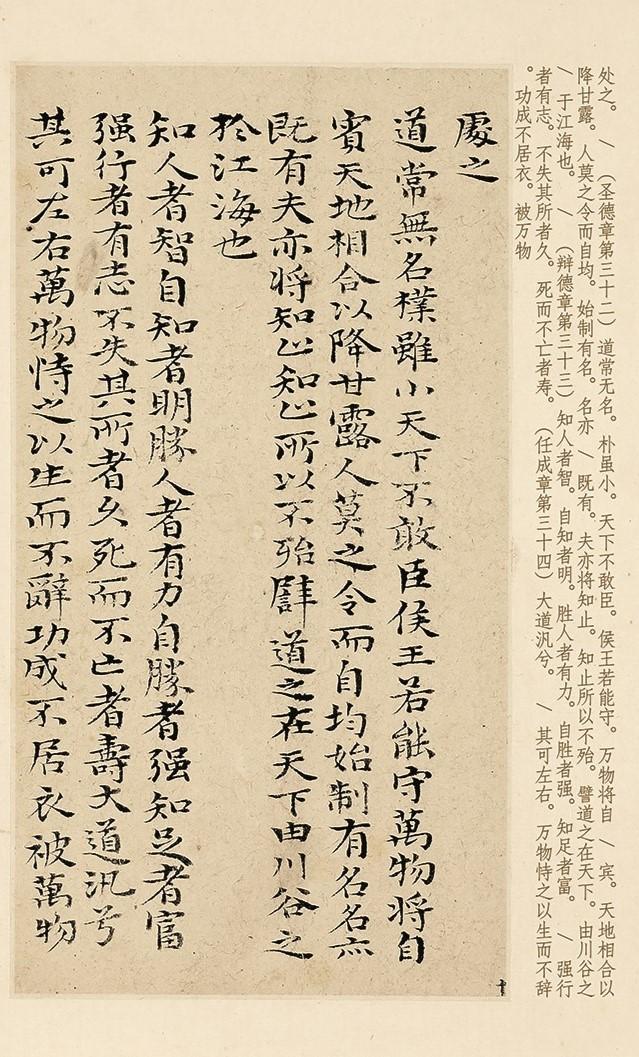 处之。 \ （圣德章第三十二）道常无名。朴虽小。天下不敢臣。侯王若能守。万物将自 \ 宾。天地相合以
降甘露。人莫之令而自均。始制有名。名亦 \ 既有。夫亦将知止。知止所以不殆。譬道之在天下。由川谷之
\ 于江海也。 \ （辩德章第三十三）知人者智。自知者明。胜人者有力。自胜者强。知足者富。 \ 强行
者有志。不失其所者久。死而不亡者寿。（任成章第三十四）大道汎兮。 \ 其可左右。万物恃之以生而不辞
。功成不居衣。被万物
處之
道常無名樸雖小天下不敢臣侯王若能守萬物将自
賓天地相合以降甘露人莫之令而自均始制有名名亦
既有夫亦将知止知止所以不殆譬道之在天下由川谷之
於江海也
知人者智自知者明勝人者有力自勝者强知足者富
强行者有志不失其所者久死而不亡者壽大道汎兮
其可左右萬物恃之以生而不辭功成不居衣被萬物
十